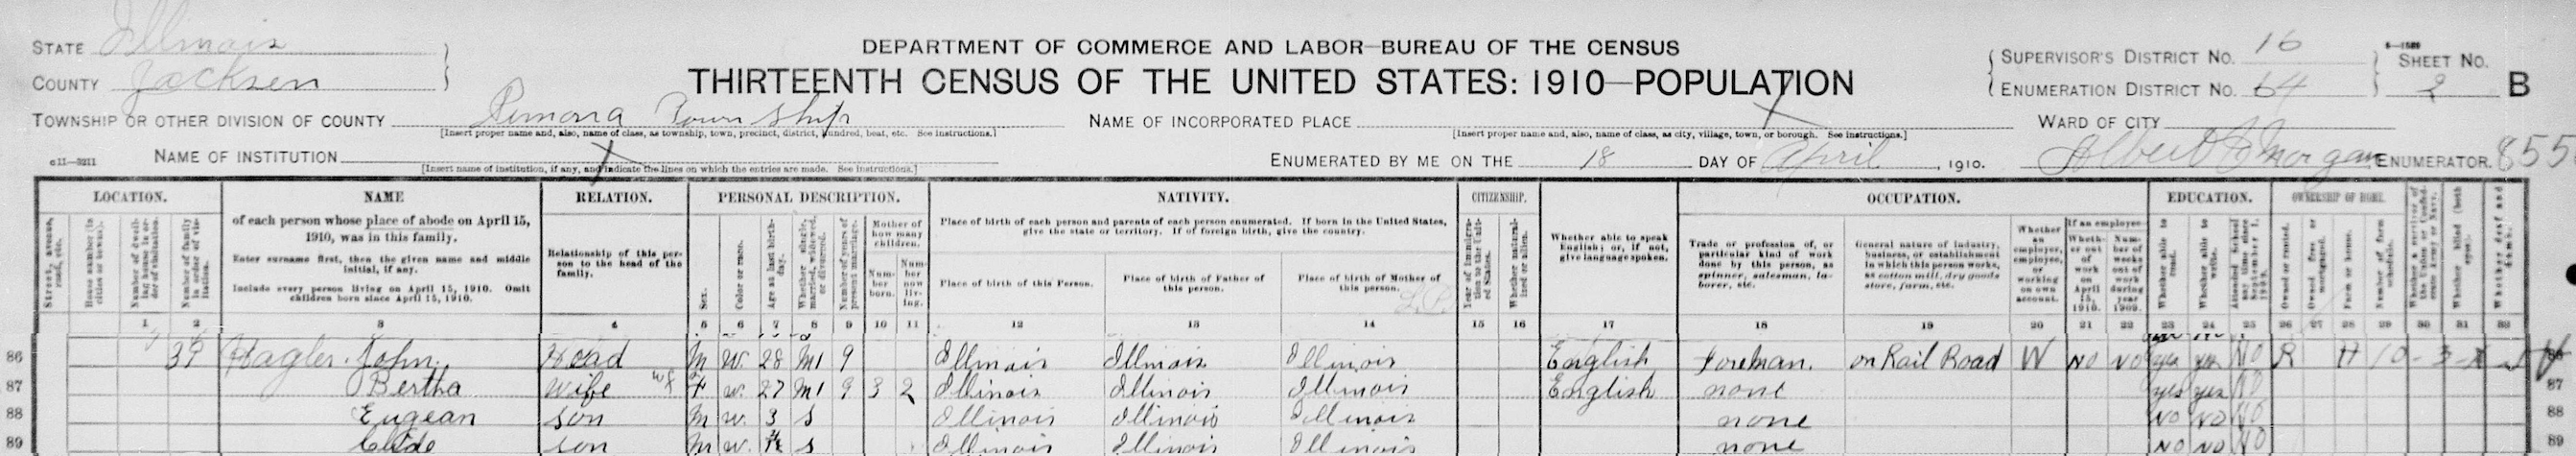 STATE Illinois
COUNTY Jackson
DEPARTMENT OF COMMERCE AND LABOR—BUREAU OF THE CENSUS
THIRTEENTH CENSUS OF THE UNITED STATES: 1910—POPULATION
SUPERVISOR'S DISTRICT No. 16
ENUMERATION DISTRICT No. 64
SHEET No.
2 B
TOWNSHIP OR OTHER DIVISION OF COUNTY Pomona Township
[Insert proper name and, also, name of class, as township, town, precinct, district, hundred, beat, etc. See instructions.]
NAME OF INCORPORATED PLACE
[Insert proper name and, also, name of class, as city, village, town, or borough. See instructions.]
WARD OF CITY
NAME OF INSTITUTION
[Insert name of institution, if any, and indicate the lines on which the entries are made. See instructions.]
ENUMERATED BY ME ON THE 18 DAY OF April, 1910. Albert Morgan ENUMERATOR. 855
LOCATION.
Street, avenue, road, etc.
House number (in cities or towns).
Number of dwelling house in order of visitation.
Number of family in order of visitation.
NAME
of each person whose place of abode on April 15, 1910, was in this family.
Enter surname first, then the given name and middle initial, if any.
Include every person living on April 15, 1910. Omit children born since April 15, 1910.
RELATION.
Relationship of this person to the head of the family.
PERSONAL DESCRIPTION.
Sex.
Color or race.
Age at last birthday.
Whether single, married, widowed, or divorced.
Number of years of present marriage.
Mother of how many children.
Number born.
Number now living.
NATIVITY.
Place of birth of each person and parents of each person enumerated. If born in the United States, give the state or territory. If of foreign birth, give the country.
Place of birth of this Person.
Place of birth of Father of this person.
Place of birth of Mother of this person.
CITIZENSHIP.
Year of immigration to the United States.
Whether naturalized or alien.
Whether able to speak English; or, if not, give language spoken.
OCCUPATION.
Trade or profession of, or particular kind of work done by this person, as spinner, salesman, laborer, etc.
General nature of industry, business, or establishment in which this person works, as cotton mill, dry goods store, farm, etc.
Whether an employer, employee, or working on own account.
If an employee—
Whether out of work on April 15, 1910.
Number of weeks out of work during year 1909.
EDUCATION.
Whether able to read.
Whether able to write.
Attended school any time since September 1, 1909.
OWNERSHIP OF HOME.
Owned or rented.
Owned free or mortgaged.
Farm or house.
Number of farm schedule.
Whether a survivor of the Union or Confederate Army or Navy.
Whether blind (both eyes).
Whether deaf and dumb.
1 2 3 4 5 6 7 8 9 10 11 12 13 14 15 16 17 18 19 20 21 22 23 24 25 26 27 28 29 30 31 32
86 39 Hagler John Head M W. 28 M1 9 Illinois Illinois Illinois English Foreman. on Rail Road W NO NO yes yes NO R H
87 Bertha wife F w. 27 M1 9 3 2 Illinois Illinois Illinois English none yes yes NO 87
88 Eugean son M w. 3 S Illinois Illinois Illinois none NO NO NO 88
89 son M w. S Illinois Illinois Illinois none NO NO NO 89